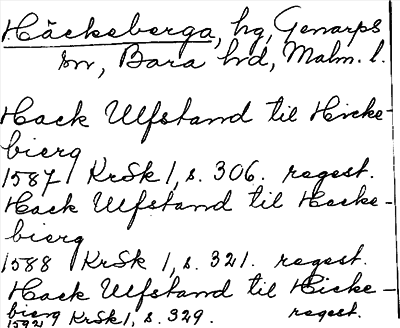 Häckeberga, hg, Genarps
sn, Bara hd, Malm. l.
Hack Ulfstand til Hicke-
bierg
1587 KrSk 1, s. 306. regest.
Hack Ulfstand til Hecke-
bierg
1588 KrSk 1, s. 321. regest.
Hack Ulfstand til Hicke-
bierg
1592 KrSk 1, s. 329. regest.